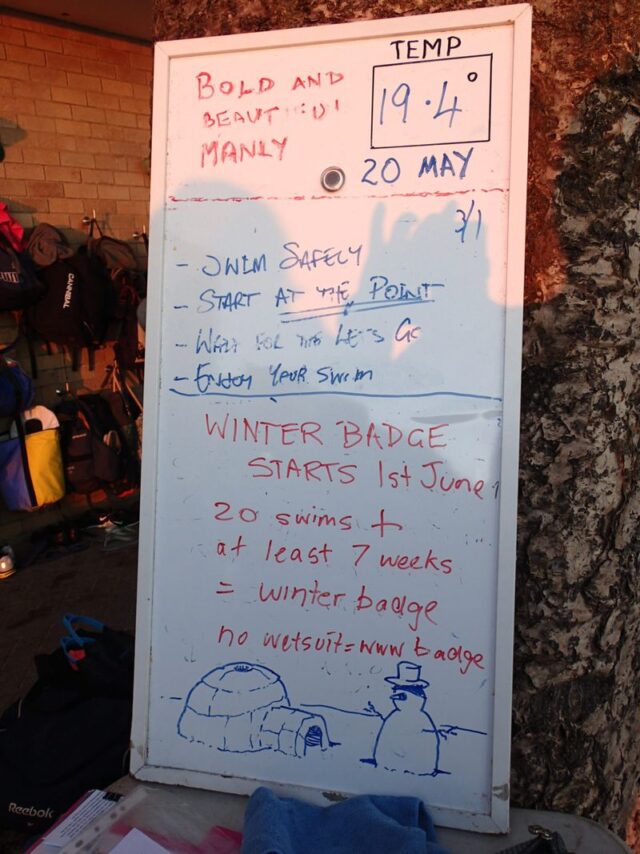 TEMP
19.4°
BOLD AND
BEAUTIFUL
MANLY
20 MAY
3/1
- SWIM SAFELY
- START AT THE POINT
- WAIT FOR THE LET'S GO
- ENJOY YOUR SWIM
WINTER BADGE
STARTS 1st June
20 swims +
at least 7 weeks
= winter badge
no wetsuit = www badge
CANNIBAL
Reebok